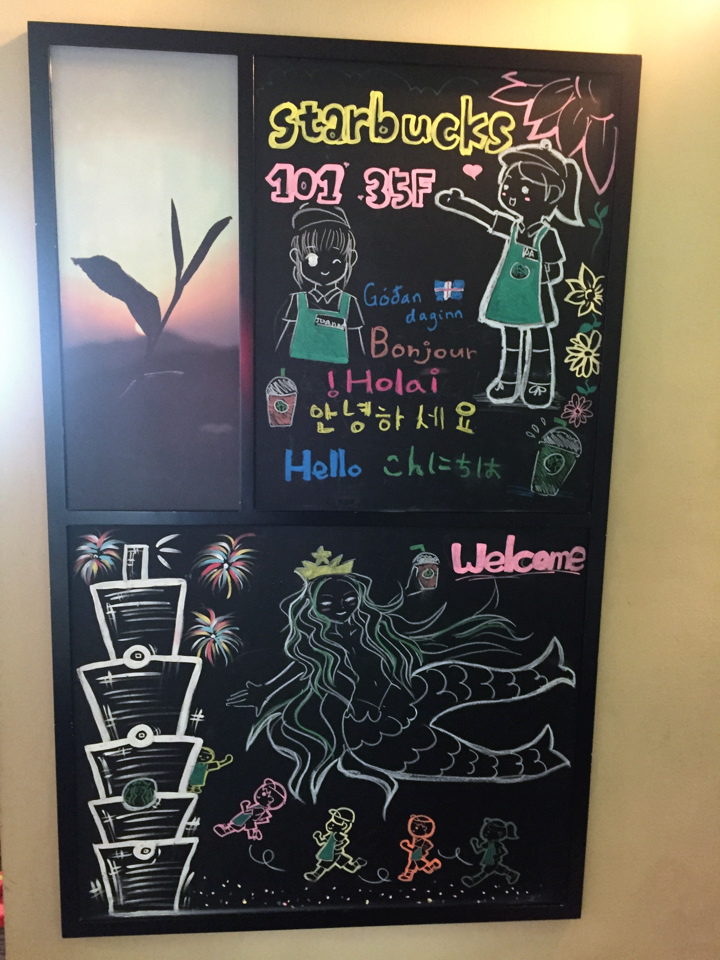 starbucks
101 35F
Góðan
daginn
Bonjour
!Holai
안녕하세요
Hello こんにちは
Welcome